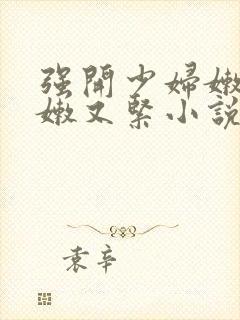 强開少婦嫩
嫩又緊小説
袁辛